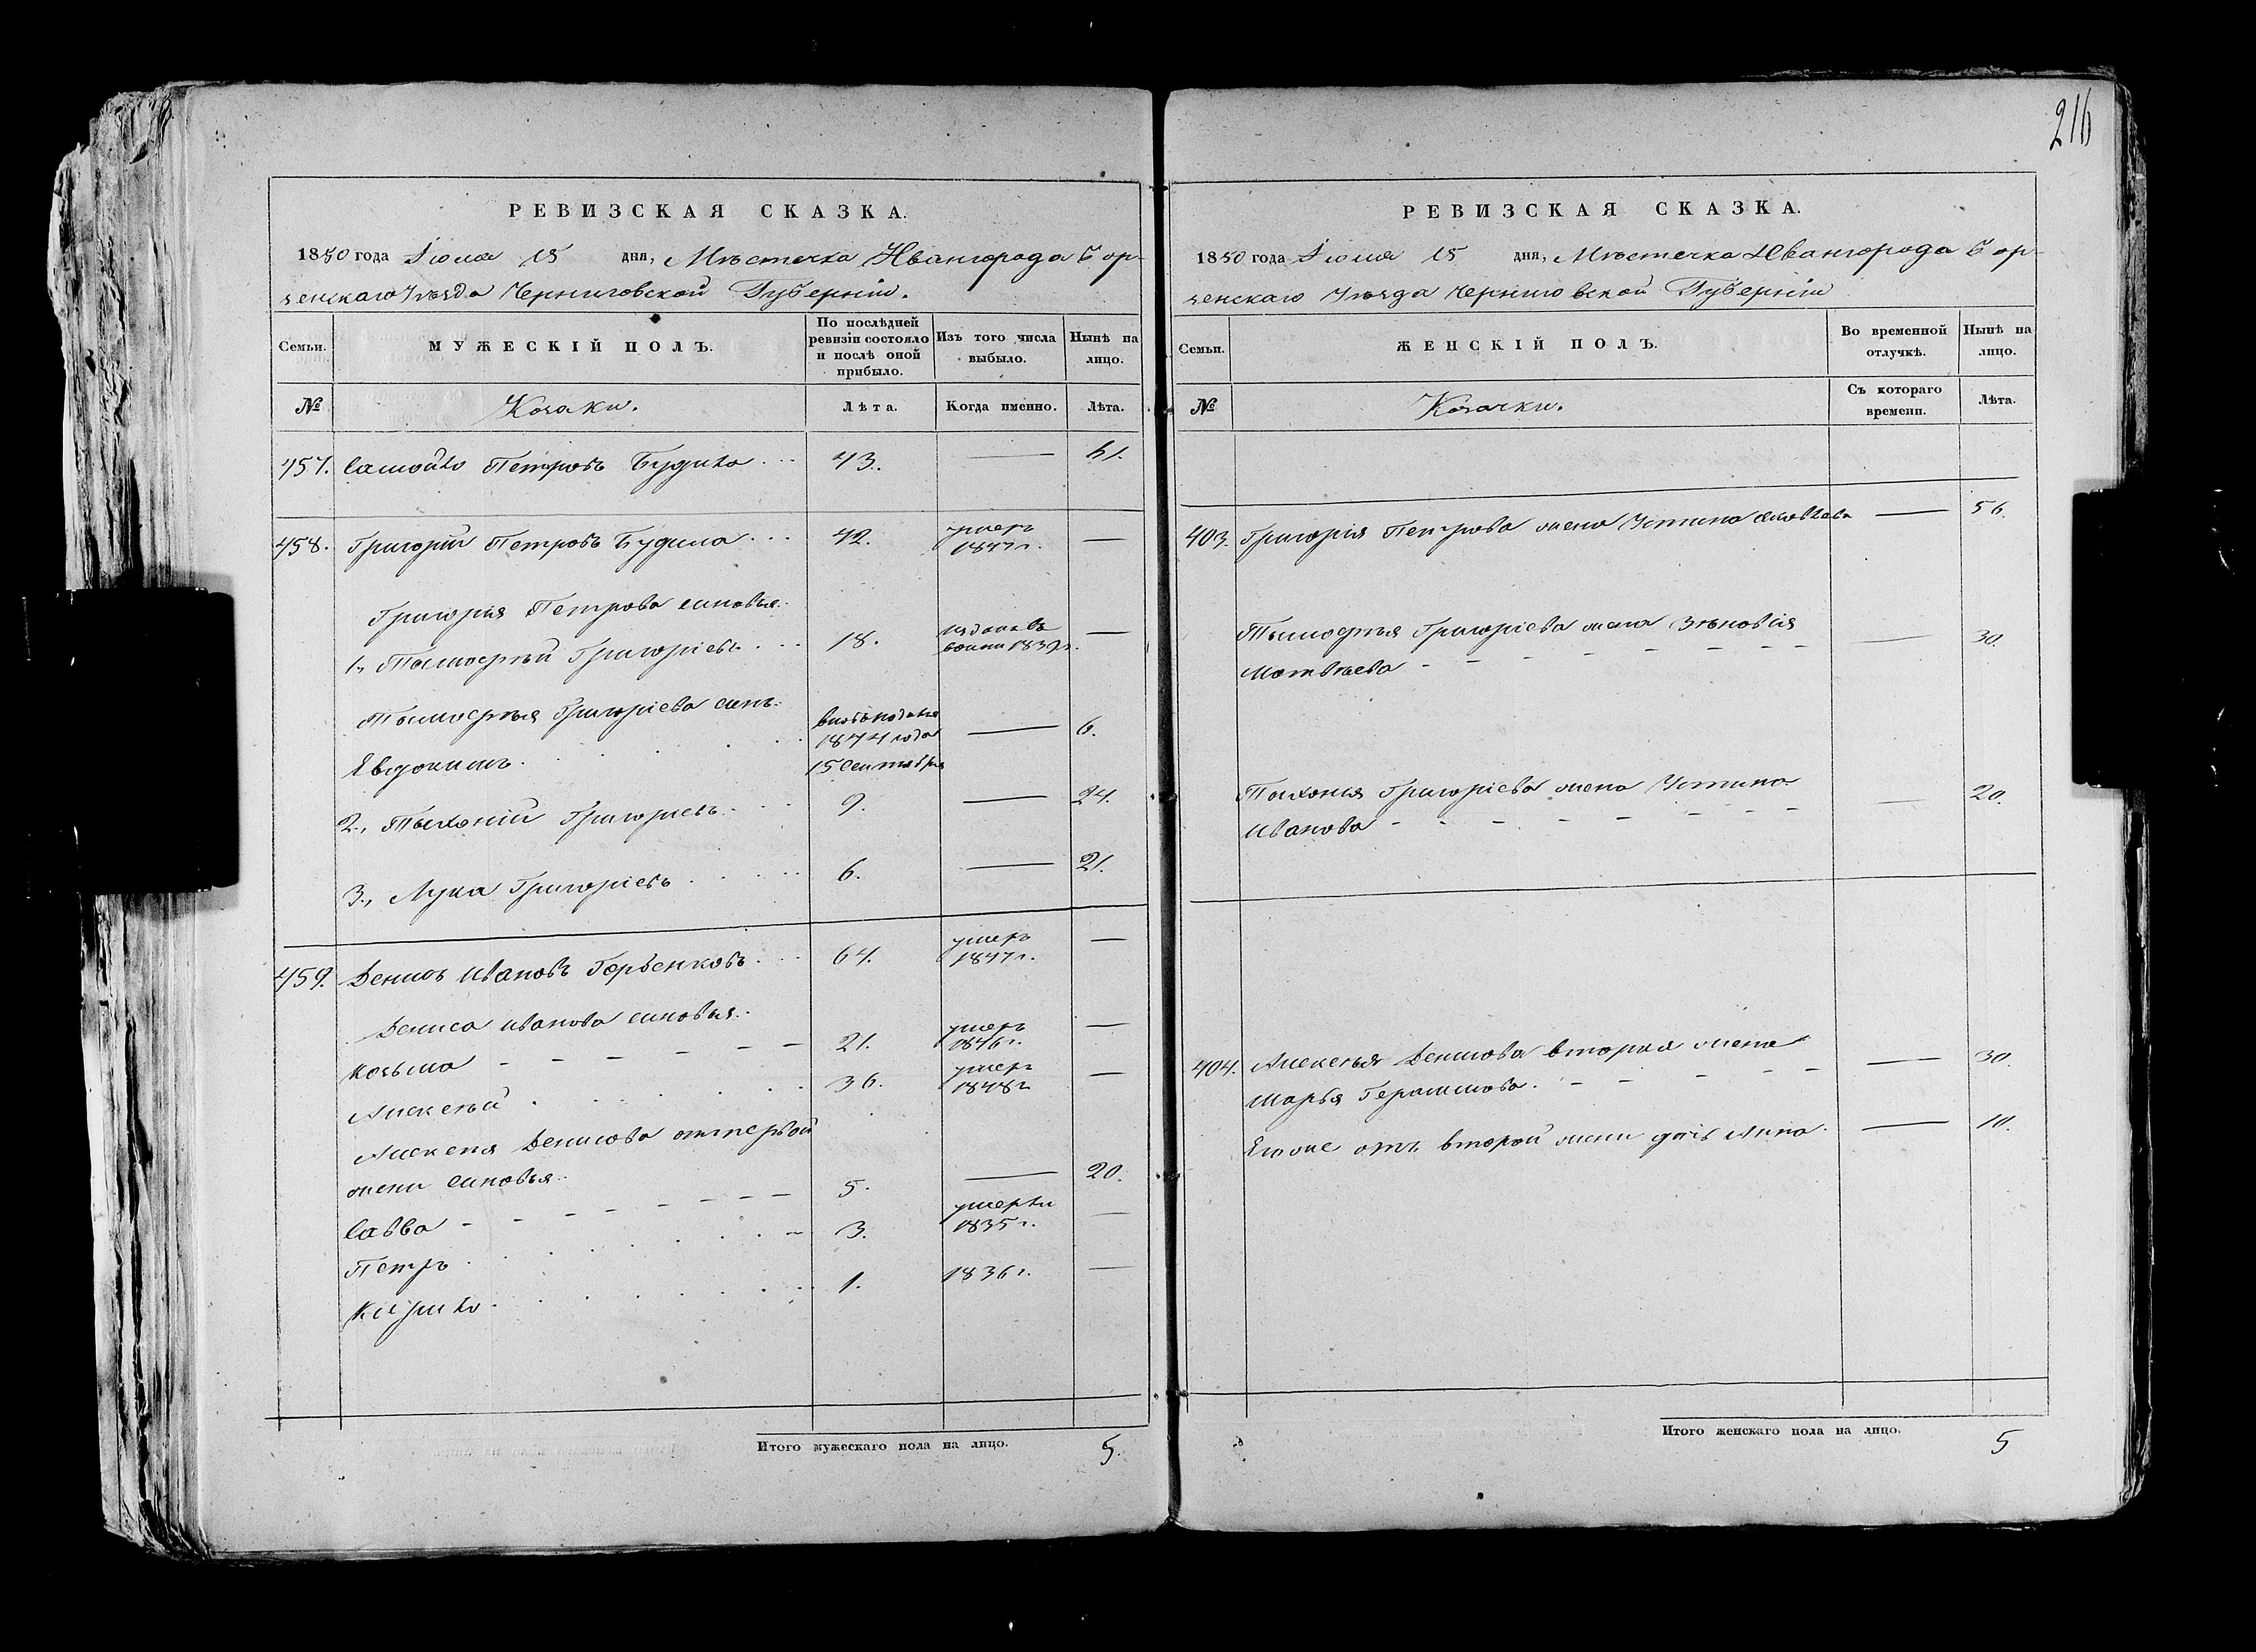 216
РЕВИЗСКАЯ СКАЗКА.
1850 года Іюля 15 дня, Мѣстечка Ивангорода Бор-
зенскаго Уѣзда Черниговской Губерніи.
Семьи. МУЖЕСКІЙ ПОЛЪ. По послѣдней ревизіи состояло и послѣ оной прибыло. Изъ того числа выбыло. Нынѣ на лицо.
№ Козаки. Лѣта. Когда именно. Лѣта.
457. Самойло Петровъ Будило 43. — 61.
458. Григорій Петровъ Будило 42. умеръ 1847 г. —
Григорія Петрова сыновья.
1, Тымофѣй Григорьевъ 18. —
Тымофѣя Григоріева сынъ.
Евдокимъ 1844 года 15 Сентября — 6.
2., Тыхоній Григорьевъ 9. — 24.
3., Лука Григорьевъ 6. — 21.
459. Денисъ Ивановъ 64. умеръ 1847 г. —
Дениса Иванова сыновья.
Козьма 21. умеръ 1846 г. —
Алексѣй 36. умеръ 1848 г. —
Алексѣя Денисова отъ первой
жены сыновья.
Савва 5. — 20.
Петръ 3. умерли 1835 г. —
Кирило 1. 1836 г. —
Итого мужескаго пола на лицо. 5.
РЕВИЗСКАЯ СКАЗКА.
1850 года Іюля 15 дня, Мѣстечка Ивангорода Бор-
зенскаго Уѣзда Черниговской Губерніи
Семьи. ЖЕНСКІЙ ПОЛЪ. Во временной отлучкѣ. Нынѣ на лицо.
№ Козачки. Съ котораго времени. Лѣта.
403. Григорія Петрова жена Устина — 56.
Тымофѣя Григоріева жена Зѣновія
Матвѣева — 30.
Тыхонія Григоріева жена Устина
Иванова — 20.
404. Алексѣя Денисова вторая жена
Марья Герасимова — 30.
Егоже отъ второй жены дочь Анна — 10.
Итого женскаго пола на лицо. 5